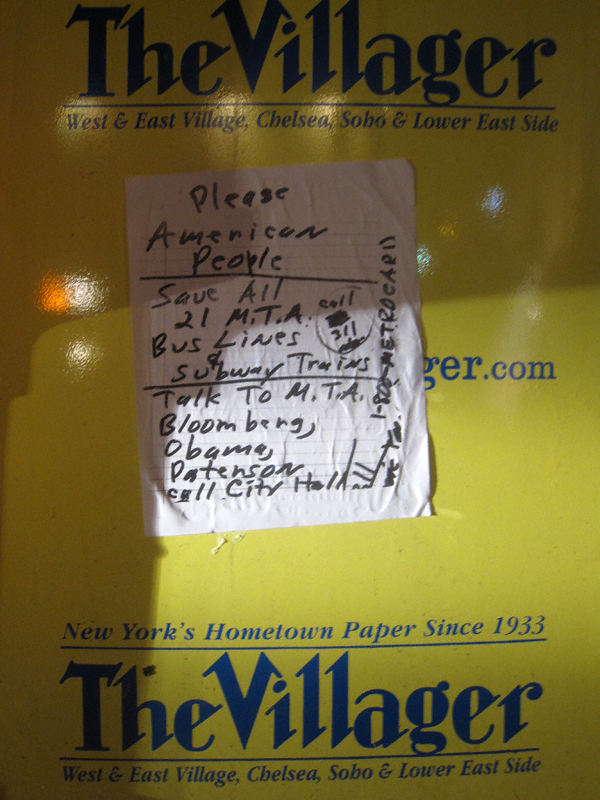 The Villager
West & East Village, Chelsea, Soho & Lower East Side
Please
American
People
Save All
21 M.T.A.
Bus Lines
&
Subway Trains
call
311
1-800-METROCARD
Talk To M.T.A.
Bloomberg,
Obama,
Paterson
call City Hall
ger.com
New York's Hometown Paper Since 1933
The Villager
West & East Village, Chelsea, Soho & Lower East Side